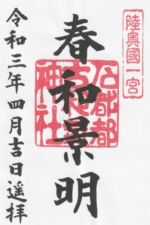 陸奥國一宮
春和景明
令和三年四月吉日遥拝